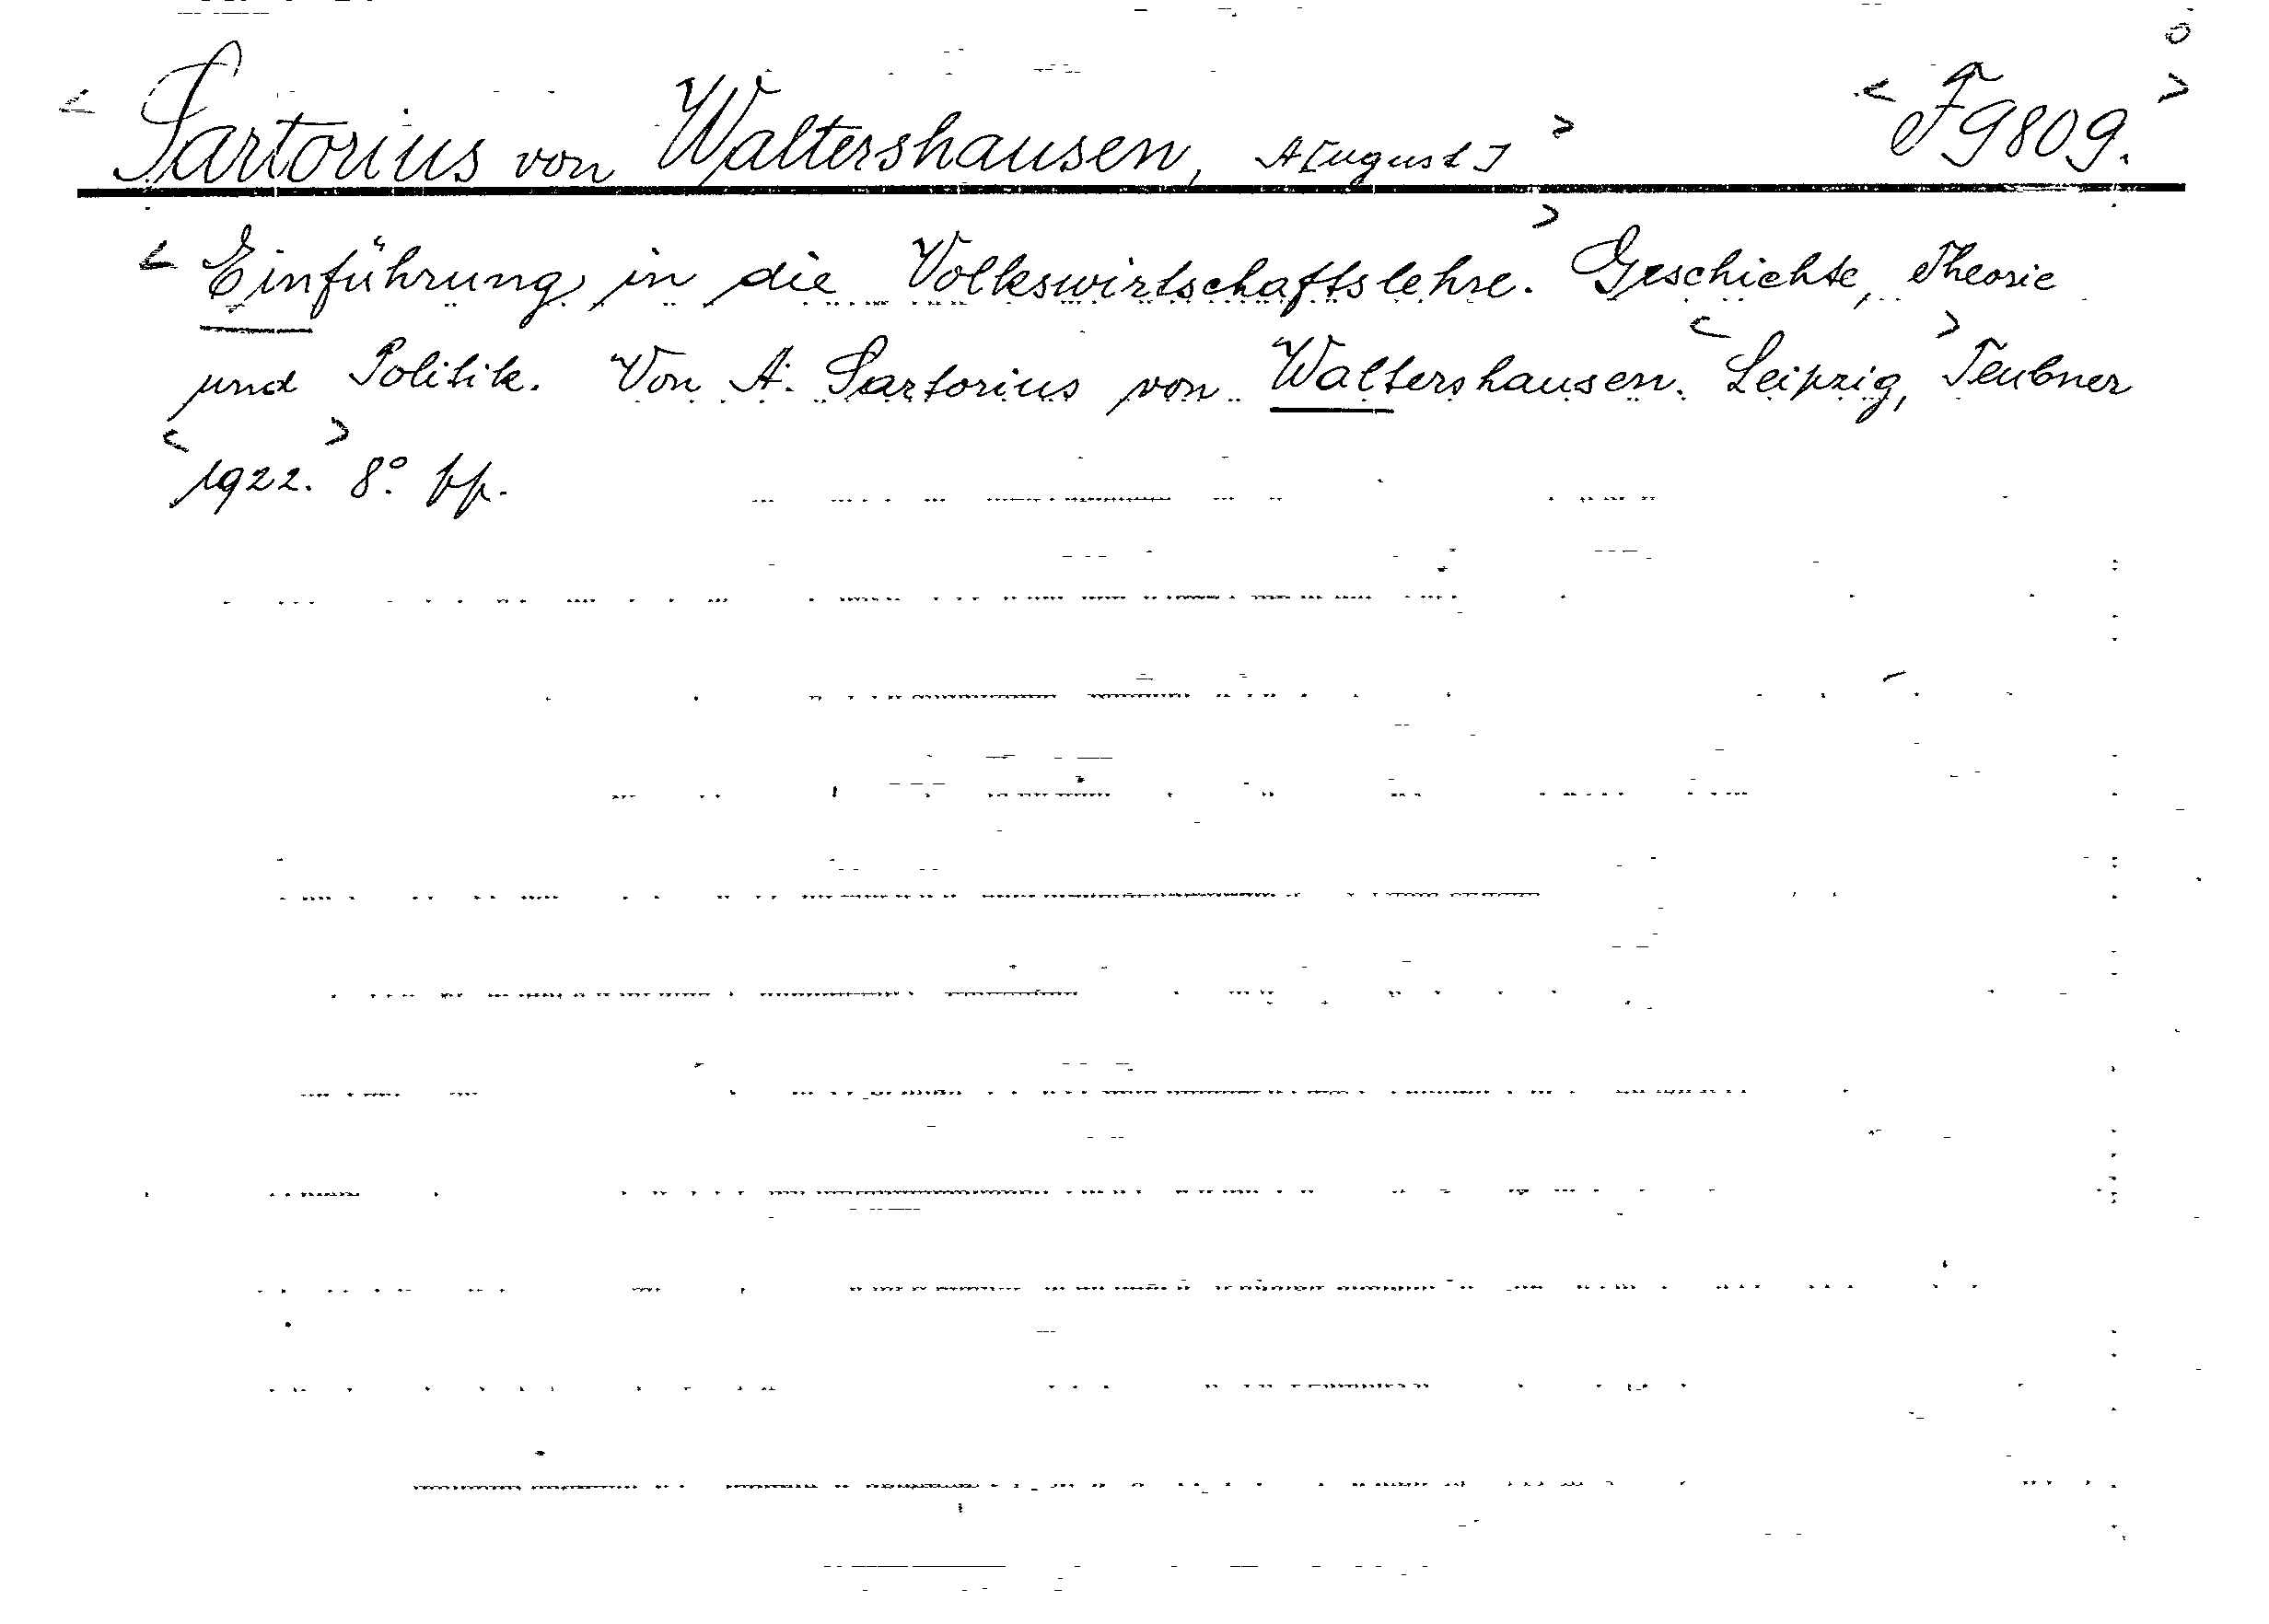 < Sartorius von Waltershausen, A[ugust] > < F 9809. >
< Einführung in die Volkswirtschaftslehre. > Geschichte, Theorie
und Politik. Von A. Sartorius von Waltershausen. < Leipzig, > Teubner
< 1922. > 8º. pp.